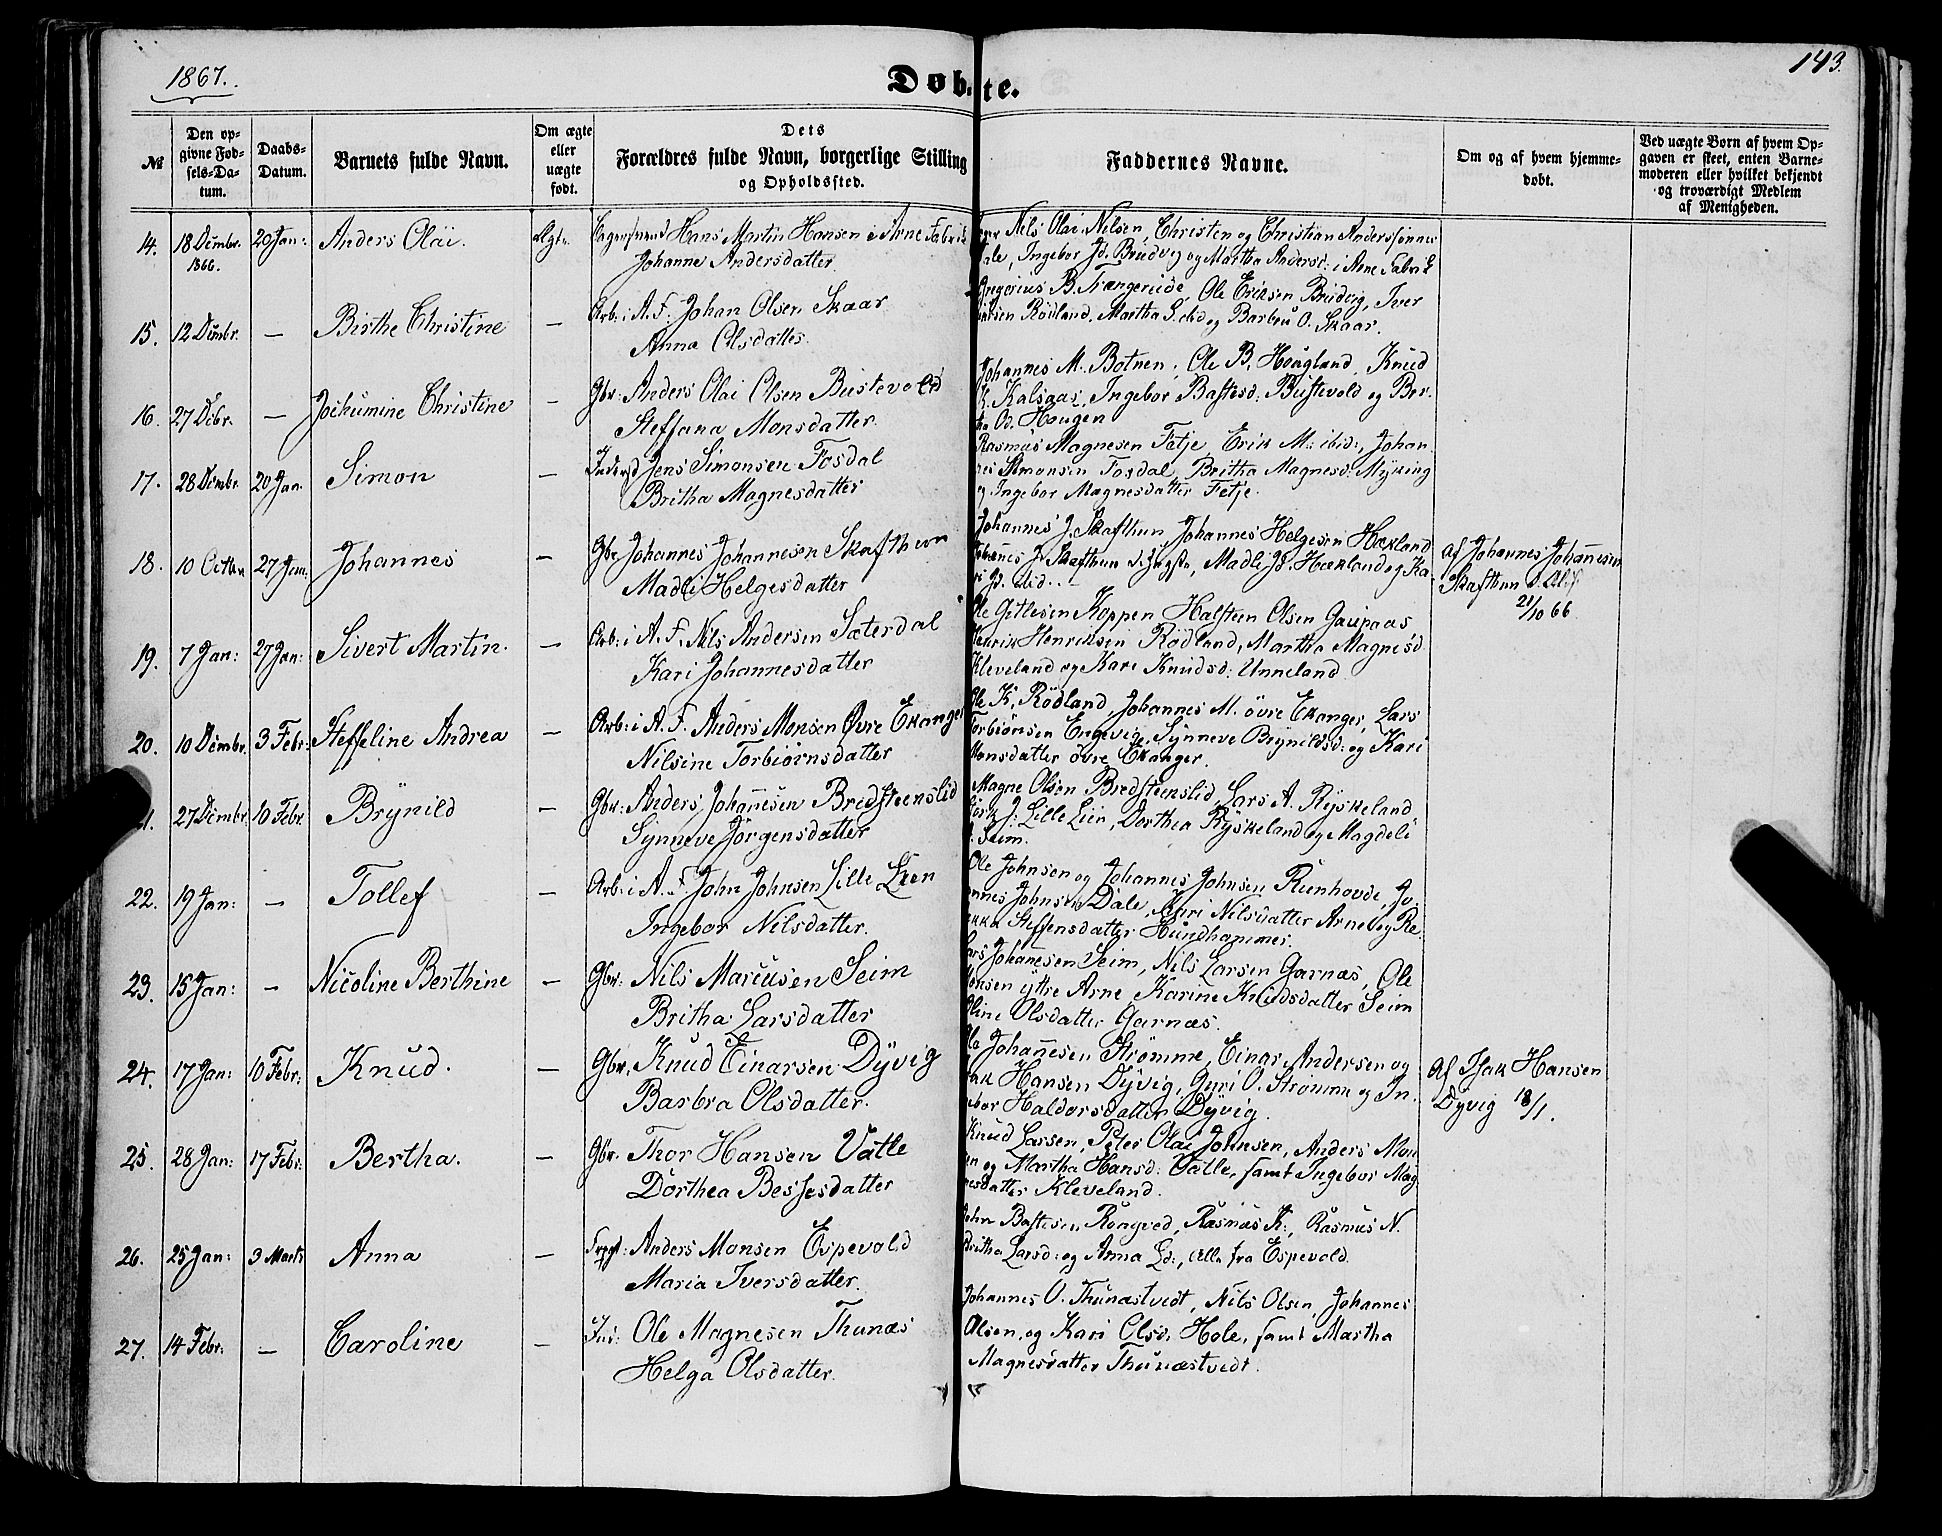 1867.
Døbte.
143.
№
Den opgivne Fødsels-Datum.
Daabs-Datum.
Barnets fulde Navn.
Om ægte eller uægte født.
Dets Forældres fulde Navn, borgerlige Stilling og Opholdssted.
Faddernes Navne.
Om og af hvem hjemmedøbt.
Ved uægte Børn af hvem Opgaven er skeet, enten Barnemoderen eller hvilket bekjendt og troværdigt Medlem af Menigheden.
14. 18 Dcmbr. 1866. 20 Jan: Anders Olai. Hans Martin Hansen i Arne Fabrik
Johanne Andersdatter.
Nils Olai Nilsen, Christen og Christian Anderssønner
Dale, Ingebor Jd. Brudvig og Martha Andersd: i Arne Fabrik
15. 12 Dcmbr. — Birthe Christine — Arb: i A. F. Johan Olsen Skaar
Anna Olsdatter.
Gregorius B. Trængereide Ole Eriksen Brudvig, Iver
Rödland, Martha og Barbru O. Skaar.
16. 27 Dcbr. — Jochumine Christine — Gbr: Anders Olai Olsen Bustevold
Steffana Monsdatter.
Johannes M. Botnen, Ole B. Hougland, Knud
K. Kalsaas, Ingebor Bastesd: Bustevold og Ber-
tha Od. Hougen
17. 28 Dcmbr. 20 Jan. Simon — Inderst Jens Simonsen Fosdal
Britha Magnesdatter
Rasmus Magnesen Fetje Erik M: ibid:, Johan-
nes Simonsen Fosdal, Britha Magnesd: Myking
og Ingebor Magnesdatter Fetje.
18. 10 Octbr 27 Jan: Johannes — Gbr Johannes Johannesen Skafthun
Madli Helgesdatter
Johannes J. Skafthun, Johannes Helgesen Hæxland
Johannes Skafthun d. yngste, Madli Jd. Hæxland og Ka-
ri Jd. ibid. —
af Johannes Johannesen
Skafthun
21/10 66.
19. 7 Jan: 27 Jan: Sivert Martin. — Arb: i A. F. Nils Andersen Sæterdal
Kari Johannesdatter
Ole Gitlesen Koppen Halsteen Olsen Gaupaas
Henrik Henriksen Rödland, Martha Magnesd
Kleveland og Kari Knudsd: Unneland
20. 10 Dcmbr. 3 Febr: Steffeline Andrea — Arb: i A. F. Anders Monsen Øvre Ekanger
Nilsine Torbiörnsdatter
Ole K. Rödland, Johannes M. övre Ekanger, Lars
Torbiönsen Engevig, Synneve Brynildsd: og Kari
Monsdatter övre Ekanger.
21. 27 Dcmbr. 10 Febr. Brynild — Gbr: Anders Johannesen Bredsteenslid
Synneve Jörgensdatter
Magne Olsen Bredsteenslid, Lars A. Ryskeland
J: Lille Lien, Dorthea Ryskeland og Magdeli
Seim.
22. 19 Jan: — Tollef — Arb: i A. F. John Johnsen Lille Lien
Ingebor Nilsdatter.
Ole Johnsen og Johannes Johnsen Runhovde, Jo-
hannes Johnsen Dale, Guri Nilsdatter Arne og Re-
bekka Steffensdatter Hundhammer.
23. 15 Jan: — Nicoline Berthine — Gbr: Nils Marcusen Seim
Britha Larsdatter
Lars Johanesen Seim, Nils Larsen Garnæs, Ole
Monsen ýttre Arne Karine Knudsdatter Seim
Oline Olsdatter Garnæs.
24. 17 Jan: 10 Febr: Knud. — Gbr. Knud Einarsen Dyvig
Barbra Olsdatter.
Ole Johannesen Strömme, Einar Andersen og
Isak Hansen Dyvig, Guri O. Strömme og In-
gebor Haldorsdatter Dyvig.
Af Isak Hansen
Dyvig 18/1.
25. 28 Jan: 17 Febr: Bertha. — Gbr. Thor Hansen Vatle
Dorthea Bessesdatter
Knud Larsen, Peter Olai Johnsen, Anders Mon-
sen og Martha Hansd: Vatle, samt Ingebor Mag-
nesdatter Kleveland.
26. 25 Jan: 3 Marts Anna — Anders Monsen Espevold
Maria Iversdatter.
John Bastesen Rongved, Rasmus K:, Rasmus N.
Britha Larsd: og Anna Ld:, alle fra Espevold.
27. 14 Febr: — Caroline — Ind: Ole Magnesen Thunæs
Helga Olsdatter.
Johannes O. Thunæstvedt, Nils Olsen, Johannes
Olsen, og Kari Olsd: Hole, samt Martha
Magnesdatter Thunæstvedt.